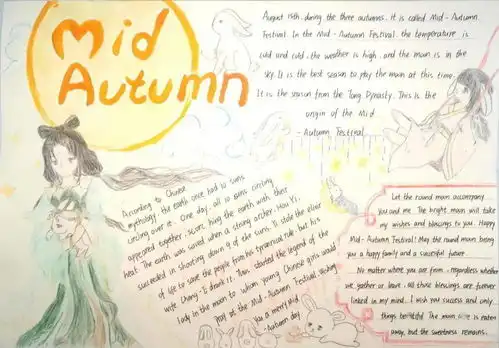 Mid
Autumn
August 15th, during the three autumns. It is called Mid - Autumn
Festival. In the Mid - Autumn Festival, the temperature is
cold and cold, the weather is high, and the moon is in the
sky. It is the best season to play the moon at this time.
It is the season from the Tang Dynasty. This is the
origin of the Mid
- Autumn Festival
According to Chinese
mythology, the earth once had 10 suns
circling over it. One day, all 10 suns circling
appeared together, scorching the earth with their
heat. The earth was saved when a strong archer, Hou Yi,
succeeded in shooting down 9 of the suns. Yi stole the elixir
of life to save the people from his tyrannical rule, but his
wife Chang-E drank it. Thus started the legend of the
lady in the moon to whom young Chinese girls would
Pray at the Mid-Autumn Festival wishing
you a merry Mid
- Autumn day
Let the round moon accompany
you and me. The bright moon will take
my wishes and blessings to you. Happy
Mid-Autumn Festival! May the round moon bring
you a happy family and a successful future.
No matter where you are from, regardless whether
we gather or leave, all those blessings are forever
linked in my mind. I wish you success and only
things beautiful. The moon cake is eaten
away, but the sweetness remains.